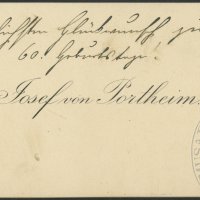 lichsten Glückwunsch zum
60. Geburtstage!
Josef von Portheim.